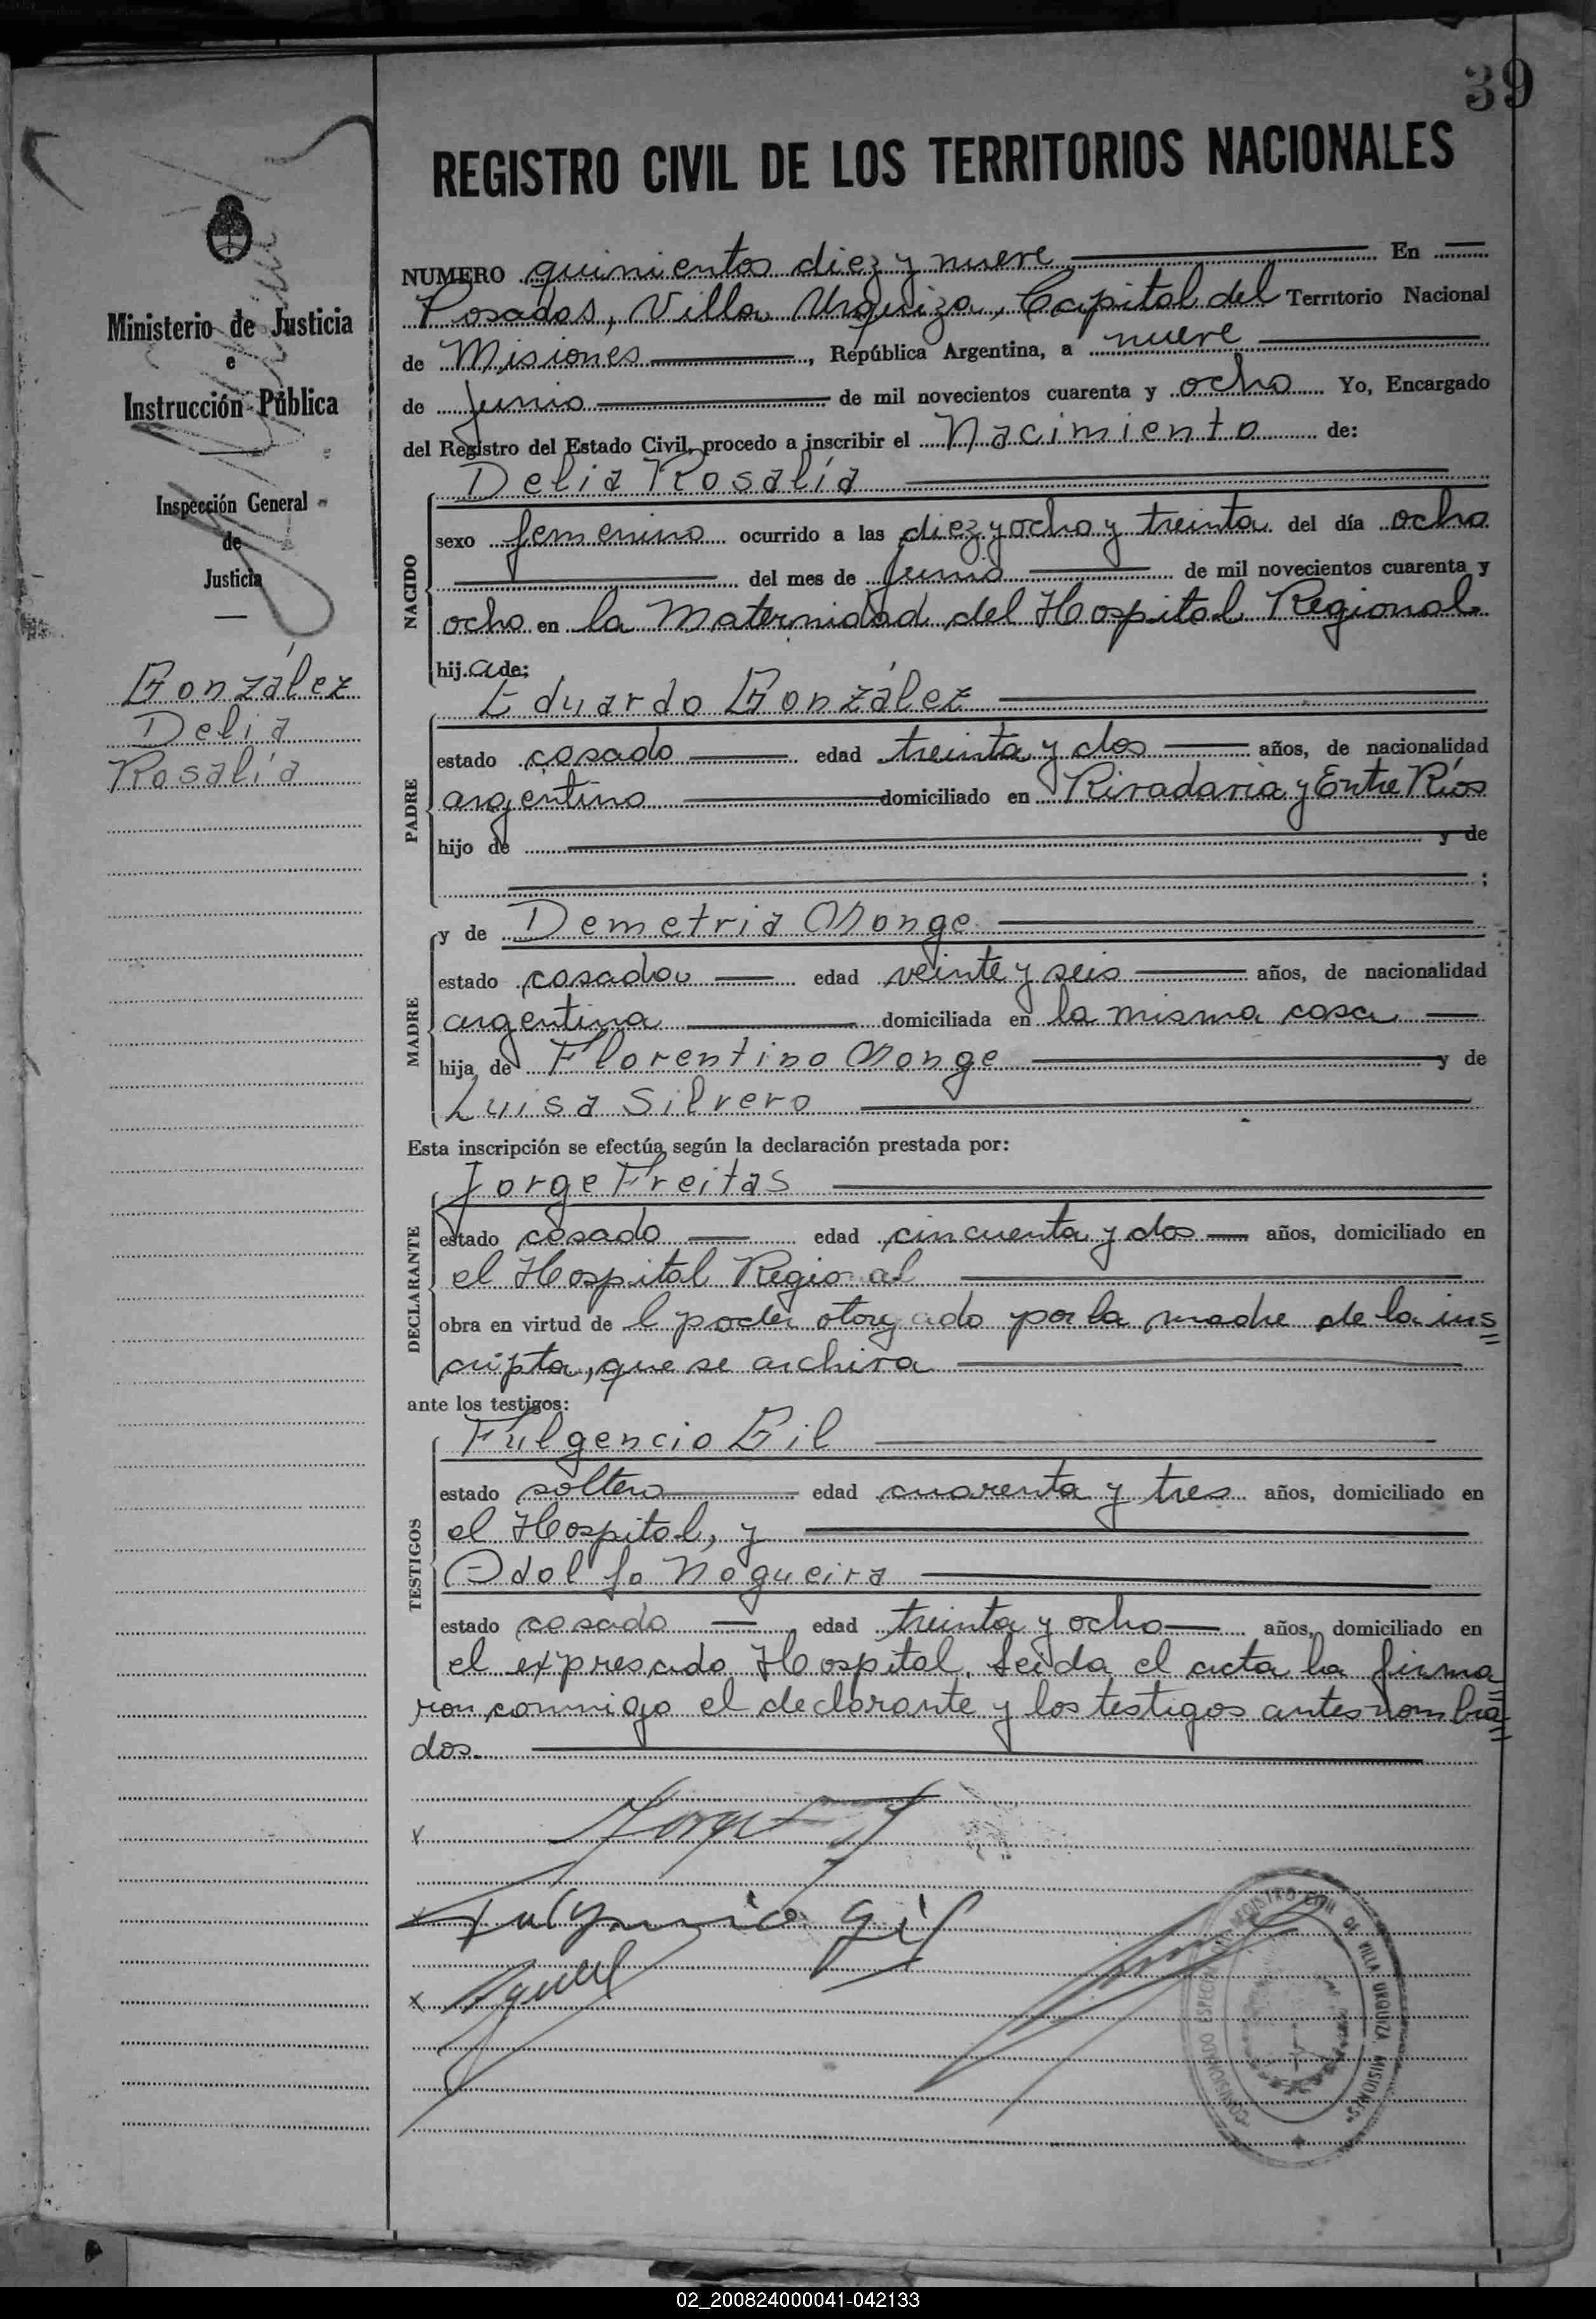 39
REGISTRO CIVIL DE LOS TERRITORIOS NACIONALES
Ministerio de Justicia
e
Instrucción Pública
Inspección General
de
Justicia
González
Delia
Rosalía
NUMERO quinientos diez y nueve En
Posadas, Villa Urquiza, Capital del Territorio Nacional
de Misiones, República Argentina, a nueve
de Junio de mil novecientos cuarenta y ocho Yo, Encargado
del Registro del Estado Civil, procedo a inscribir el Nacimiento de:
Delia Rosalía
NACIDO
sexo femenino ocurrido a las diez y ocho y treinta del día ocho
del mes de Junio de mil novecientos cuarenta y
ocho en la Maternidad del Hospital Regional.
hija de:
Eduardo González
PADRE
estado casado edad treinta y dos años, de nacionalidad
argentino domiciliado en Rivadavia y Entre Ríos
hijo de y de
;
y de Demetria Monge
MADRE
estado casada edad veinte y seis años, de nacionalidad
argentina domiciliada en la misma casa
hija de Florentino Monge y de
Luisa Silvero
Esta inscripción se efectúa según la declaración prestada por:
Jorge Freitas
DECLARANTE
estado casado edad cincuenta y dos años, domiciliado en
el Hospital Regional
obra en virtud de l poder otorgado por la madre de la ins
cripta, que se archiva
ante los testigos:
Fulgencio Gil
TESTIGOS
estado soltero edad cuarenta y tres años, domiciliado en
el Hospital, y
Adolfo Nogueira
estado casado edad treinta y ocho años, domiciliado en
el expresado Hospital. Leida el acta la firma
ron conmigo el declarante y los testigos antes nombra
dos.
Jorge F
Fulgencio Gil
REGISTRO CIVIL DE VILLA URQUIZA MISIONES
COMISIONADO ESPECIAL
02_200824000041-042133